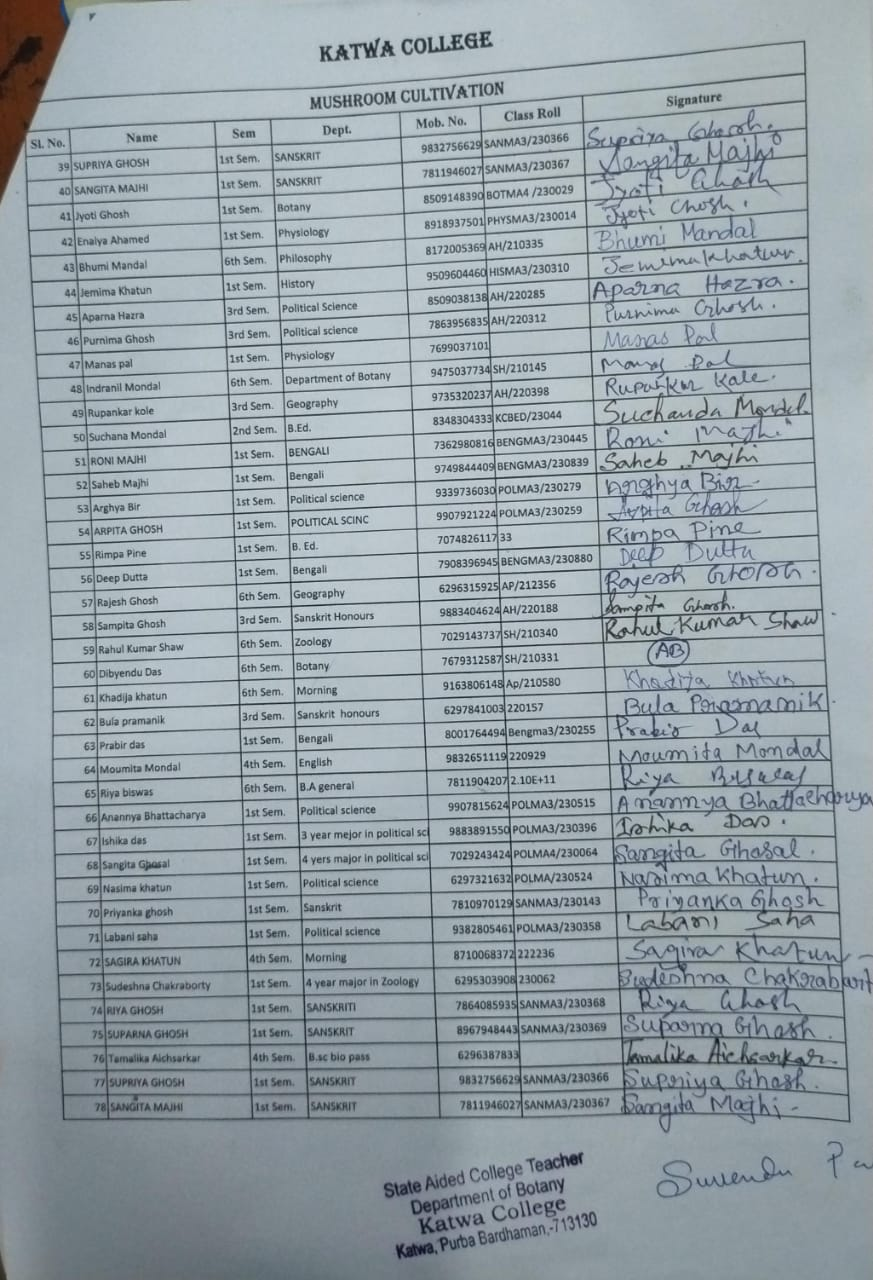 KATWA COLLEGE
MUSHROOM CULTIVATION
Sl. No. Name Sem Dept. Mob. No. Class Roll Signature
39 SUPRIYA GHOSH 1st Sem. SANSKRIT 9832756629 SANMA3/230366 Supriya Ghosh.
40 SANGITA MAJHI 1st Sem. SANSKRIT 7811946027 SANMA3/230367 Sangita Majhi
41 Jyoti Ghosh 1st Sem. Botany 8509148390 BOTMA4 /230029 Jyoti Ghosh
42 Enaiya Ahamed 1st Sem. Physiology 8918937501 PHYSMA3/230014 Jyoti Ghosh.
43 Bhumi Mandal 6th Sem. Philosophy 8172005369 AH/210335 Bhumi Mandal
44 Jemima Khatun 1st Sem. History 9509604460 HISMA3/230310 Jemima khatun.
45 Aparna Hazra 3rd Sem. Political Science 8509038138 AH/220285 Aparna Hazra.
46 Purnima Ghosh 3rd Sem. Political science 7863956835 AH/220312 Purnima Ghosh.
47 Manas pal 1st Sem. Physiology 7699037101 Manas Pal
48 Indranil Mondal 6th Sem. Department of Botany 9475037734 SH/210145 Manas Pal
49 Rupankar kole 3rd Sem. Geography 9735320237 AH/220398 Rupankar Kole.
50 Suchana Mondal 2nd Sem. B.Ed. 8348304333 KCBED/23044 Suchanda Mondal.
51 RONI MAJHI 1st Sem. BENGALI 7362980816 BENGMA3/230445 Roni Majhi
52 Saheb Majhi 1st Sem. Bengali 9749844409 BENGMA3/230839 Saheb Majhi
53 Arghya Bir 1st Sem. Political science 9339736030 POLMA3/230279 Arghya Bir.
54 ARPITA GHOSH 1st Sem. POLITICAL SCINC 9907921224 POLMA3/230259 Arpita Ghosh
55 Rimpa Pine 1st Sem. B. Ed. 7074826117 33 Rimpa Pine
56 Deep Dutta 1st Sem. Bengali 7908396945 BENGMA3/230880 Deep Dutta
57 Rajesh Ghosh 6th Sem. Geography 6296315925 AP/212356 Rajesh Ghosh.
58 Sampita Ghosh 3rd Sem. Sanskrit Honours 9883404624 AH/220188 Sampita Ghosh.
59 Rahul Kumar Shaw 6th Sem. Zoology 7029143737 SH/210340 Rahul Kumar Shaw
60 Dibyendu Das 6th Sem. Botany 7679312587 SH/210331 AB
61 Khadija khatun 6th Sem. Morning 9163806148 Ap/210580 Khadija Khatun
62 Bula pramanik 3rd Sem. Sanskrit honours 6297841003 220157 Bula Pramamik.
63 Prabir das 1st Sem. Bengali 8001764494 Bengma3/230255 Prabir Das
64 Moumita Mondal 4th Sem. English 9832651119 220929 Moumita Mondal
65 Riya biswas 6th Sem. B.A general 7811904207 2.10E+11 Riya Biswas
66 Anannya Bhattacharya 1st Sem. Political science 9907815624 POLMA3/230515 Anannya Bhattacharya
67 Ishika das 1st Sem. 3 year mejor in political sci 9883891550 POLMA3/230396 Ishika Das.
68 Sangita Ghosal 1st Sem. 4 yers major in political sci 7029243424 POLMA4/230064 Sangita Ghosal.
69 Nasima khatun 1st Sem. Political science 6297321632 POLMA/230524 Nasima Khatun.
70 Priyanka ghosh 1st Sem. Sanskrit 7810970129 SANMA3/230143 Priyanka Ghosh
71 Labani saha 1st Sem. Political science 9382805461 POLMA3/230358 Labani Saha
72 SAGIRA KHATUN 4th Sem. Morning 8710068372 222236 Sagira Khatun
73 Sudeshna Chakraborty 1st Sem. 4 year major in Zoology 6295303908 230062 Sudeshna Chakrabart
74 RIYA GHOSH 1st Sem. SANSKRITI 7864085935 SANMA3/230368 Riya Ghosh
75 SUPARNA GHOSH 1st Sem. SANSKRIT 8967948443 SANMA3/230369 Suparna Ghosh.
76 Tamalika Aichsarkar 4th Sem. B.sc bio pass 6296387833 Tamalika Aichsarkar.
77 SUPRIYA GHOSH 1st Sem. SANSKRIT 9832756629 SANMA3/230366 Supriya Ghosh.
78 SANGITA MAJHI 1st Sem. SANSKRIT 7811946027 SANMA3/230367 Sangita Majhi
State Aided College Teacher
Department of Botany
Katwa College
Katwa, Purba Bardhaman,-713130